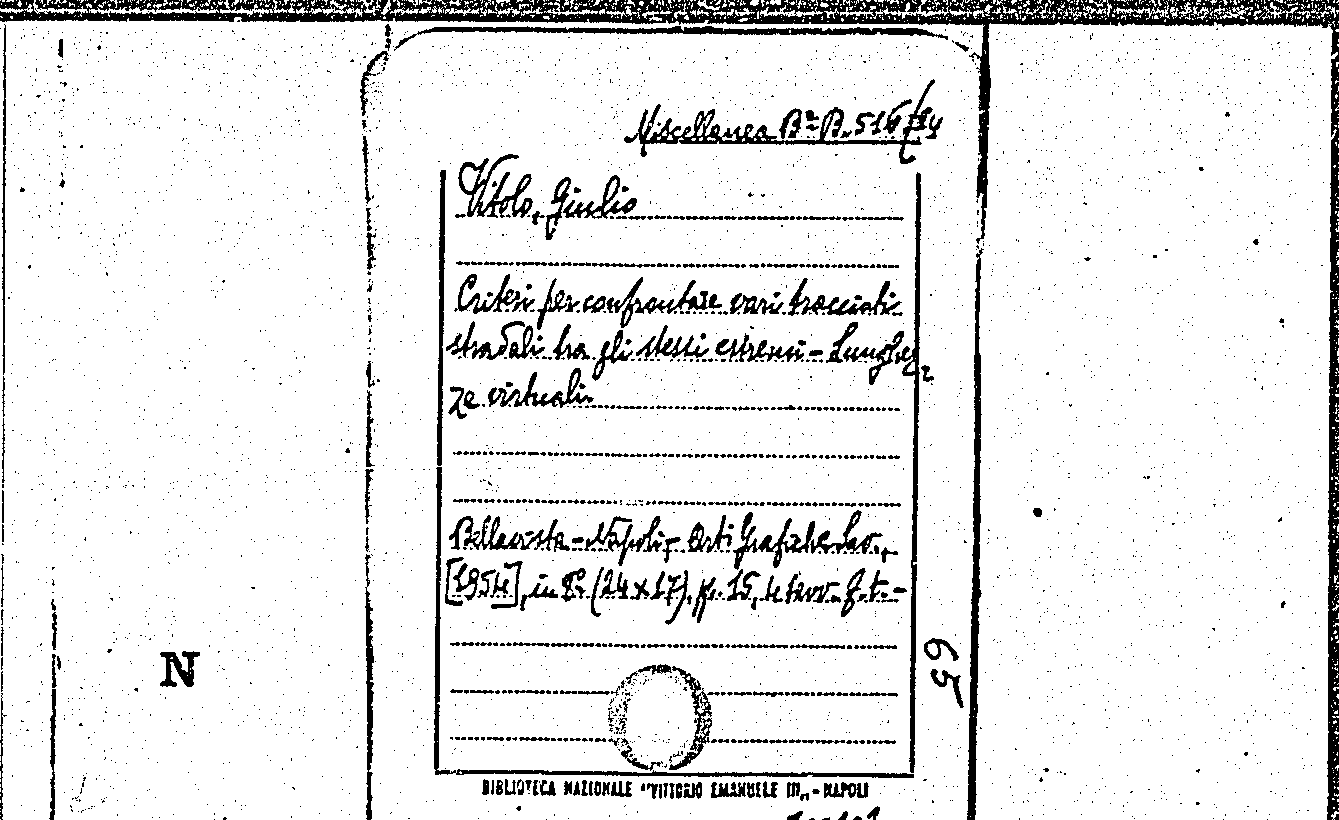 Miscellanea Bª B. 516/34
Vitolo, Giulio
Criteri per confrontare vari tracciati
stradali tra gli stessi estremi - Lunghez
ze virtuali.
Bellavista - Napoli, - Arti Grafiche Lav.,
[1954], in 8º (24 x 17), p. 15, tavv. f. t. -
N
65
BIBLIOTECA NAZIONALE "VITTORIO EMANUELE III„ - NAPOLI